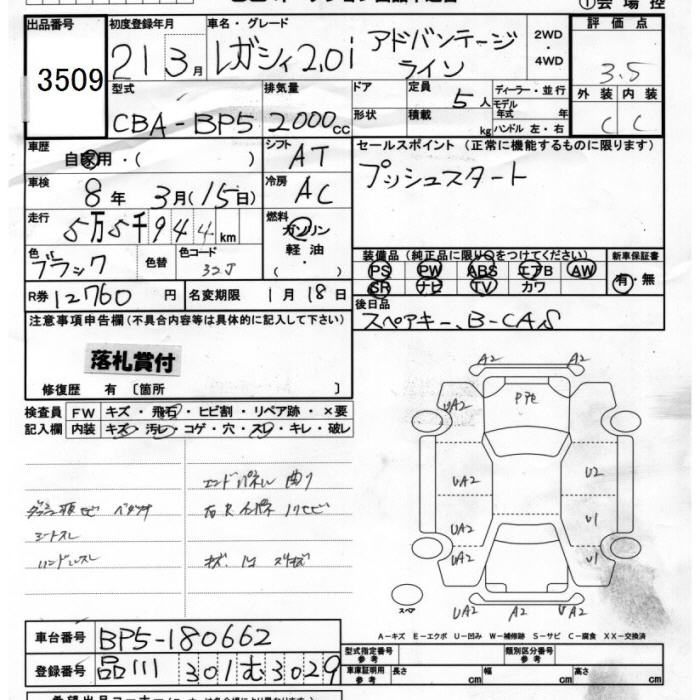 ① 会場控
出品番号 3509
初度登録年月 21 3月
車名・グレード レガシィ 2.0i アドバンテージ
ライン
2WD
・
4WD
評価点 3.5
外装 内装
C C
型式 CBA-BP5
排気量 2000cc
ドア
形状
定員 5人
積載 kg
ディーラー・並行
モデル
年式 年
ハンドル 左・右
車歴 自家用・( )
シフト AT
セールスポイント (正常に機能するものに限ります)
プッシュスタート
車検 8年 3月(15日)
冷房 AC
走行 5万5千944km
燃料 ガソリン
軽油
・
( )
色 ブラック 色替 色コード 32J
装備品 (純正品に限り○をつけてください)
PS PW ABS エアB AW
SR ナビ TV カワ
新車保証書
有・無
R券 12760円 名変期限 1月18日
後日品
スペアキー、B-CAS
注意事項申告欄(不具合内容等は具体的に記入して下さい)
落札賞付
修復歴 有 〔箇所 〕
検査員
記入欄
FW キズ・飛石・ヒビ割・リペア跡・×要
内装 キズ・汚レ・コゲ・穴・スレ・キレ・破レ
エンドパネル 曲り
シートスレ
ハンドルスレ
A2 A2
UA2 PPE
UA2 U2
UA2 U1
UA2 U1
スペア
UA2 A2 UA2
A-キズ E-エクボ U-凹み W-補修跡 S-サビ C-腐食 XX-交換済
車台番号 BP5-180662
登録番号 品川 301 む 3029
型式指定番号
参考
類別区分番号
参考
車庫証明用
参考
長さ cm 幅 cm 高さ cm